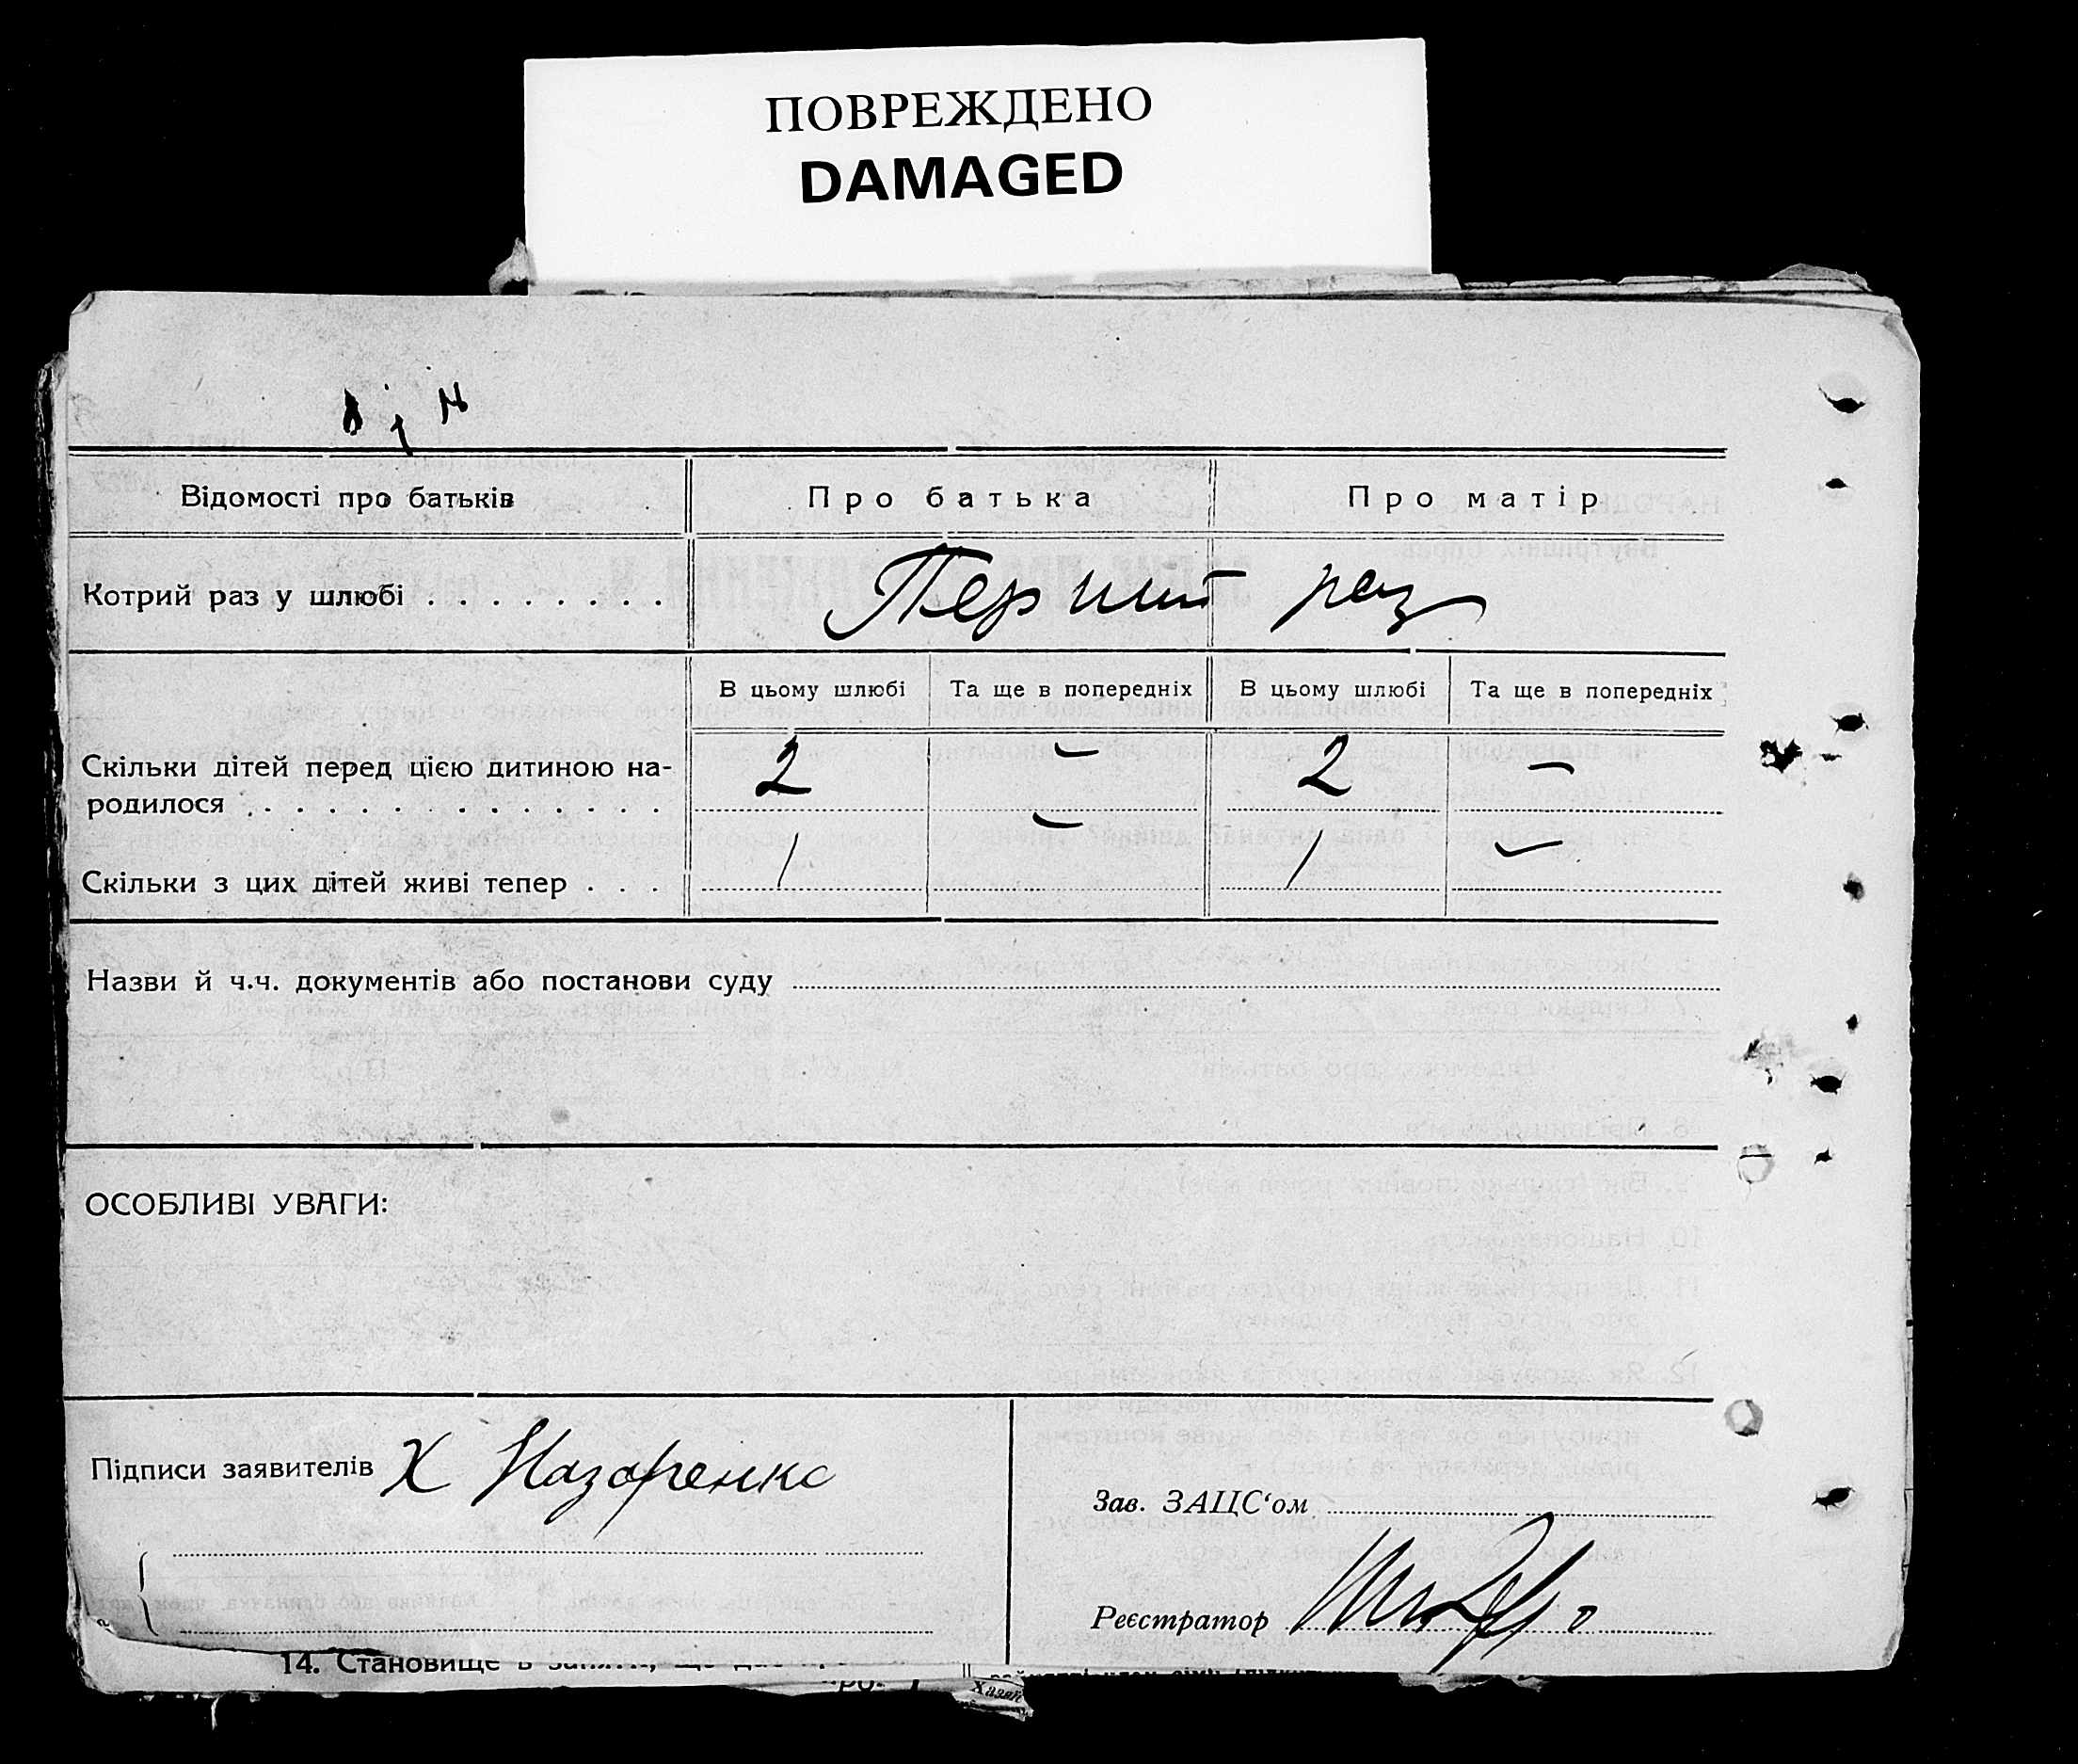 ПОВРЕЖДЕНО
DAMAGED
Відомості про батьків
Про батька
Про матір
Котрий раз у шлюбі
Перший раз
В цьому шлюбі
Та ще в попередніх
В цьому шлюбі
Та ще в попередніх
Скільки дітей перед цією дитиною на-
родилося
2 – 2 –
Скільки з цих дітей живі тепер
1 – 1 –
Назви й ч.ч. документів або постанови суду
ОСОБЛИВІ УВАГИ:
Підписи заявителів Х Назаренко
Зав. ЗАЦС‘ом
Реєстратор
14. Становище в
Хазяй